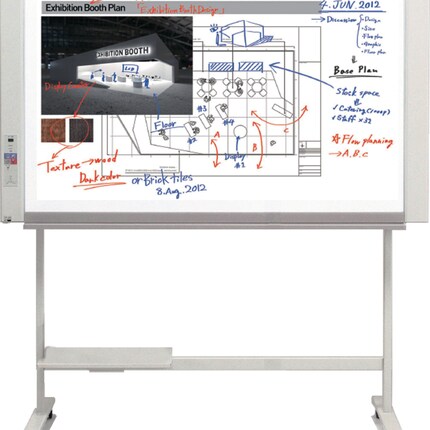 Exhibition Booth Plan
「Exhibition Booth Design」
4. JUN. 2012
→ Discussion
• Design
• Size
• Flow plan
• Graphic
• Floor plan
EXHIBITION BOOTH
Base Plan
Stock space
✓ Catering (soup)
✓ Staff x32
☆ Flow planning
→ A, B, C
#3
#4
Floor
A
B
C
Display
#2
Texture → wood
Dark color
or Brick tiles
8. Aug. 2012